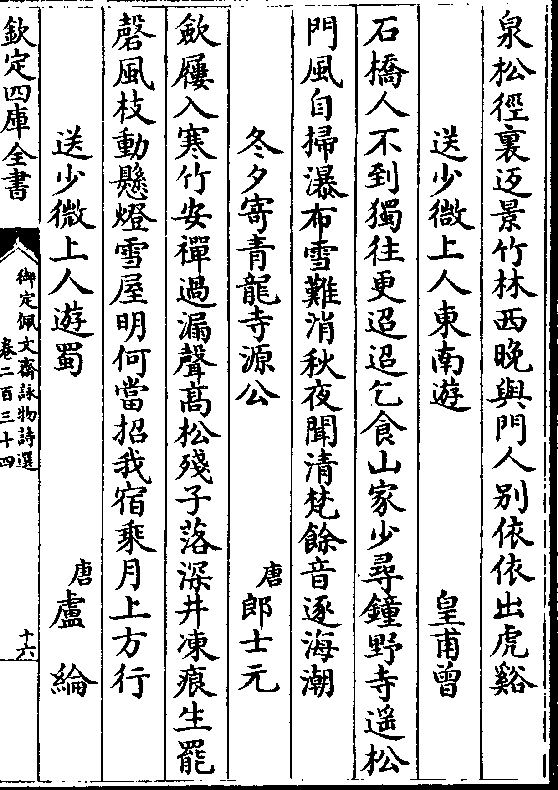 泉松徑裏返景竹林西晚與門人别依依出虎谿
送少微上人東南遊　皇甫曾
石橋人不到獨往更迢迢乞食山家少尋鐘野寺遥松
門風自掃瀑布雪難消秋夜聞清梵餘音逐海潮
冬夕寄青龍寺源公　唐郎士元
斂屨入寒竹安禪過漏聲髙松殘子落深井凍痕生罷
磬風枝動懸燈雪屋明何當招我宿乘月上方行
送少微上人遊蜀　唐盧綸
欽定四庫全書
御定佩文齋詠物詩選
卷二百三十四
十六